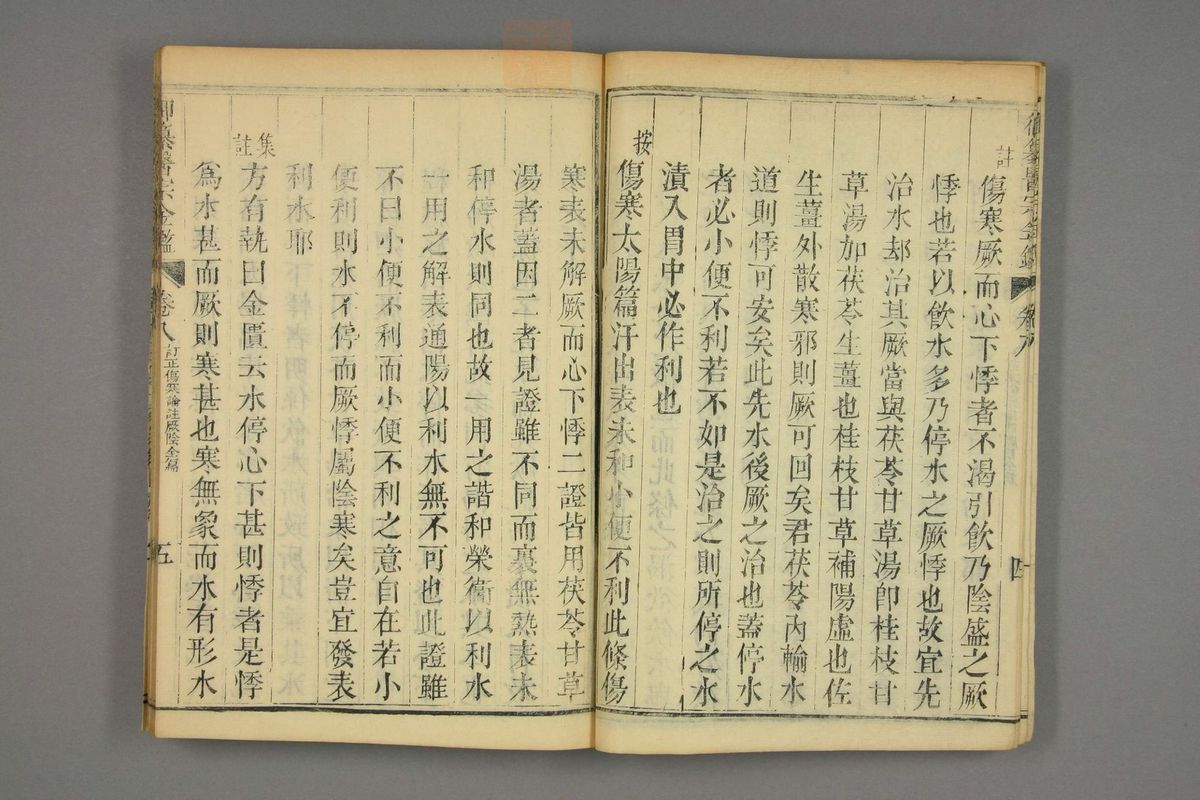 註
傷寒厥而心下悸者不渴引飮乃陰盛之厥
悸也若以飮水多乃停水之厥悸也故宜先
治水却治其厥當與茯苓甘草湯卽桂枝甘
草湯加茯苓生薑也桂枝甘草補陽虛也佐
生薑外散寒邪則厥可回矣君茯苓內輸水
道則悸可安矣此先水後厥之治也蓋停水
者必小便不利若不如是治之則所停之水
漬入胃中必作利也
按
傷寒太陽篇汗出表未和小便不利此條傷
寒表未解厥而心下悸二證皆用茯苓甘草
湯者蓋因二者見證雖不同而裏無熱表未
和停水則同也故一用之諧和榮衞以利水
一用之解表通陽以利水無不可也此證雖
不曰小便不利而小便不利之意自在若小
便利則水不停而厥悸屬陰寒矣豈宜發表
利水耶
集註
方有執曰金匱云水停心下甚則悸者是悸
爲水甚而厥則寒甚也寒無象而水有形水
御纂醫宗金鑑
卷八
訂正傷寒論註厥陰全篇
五